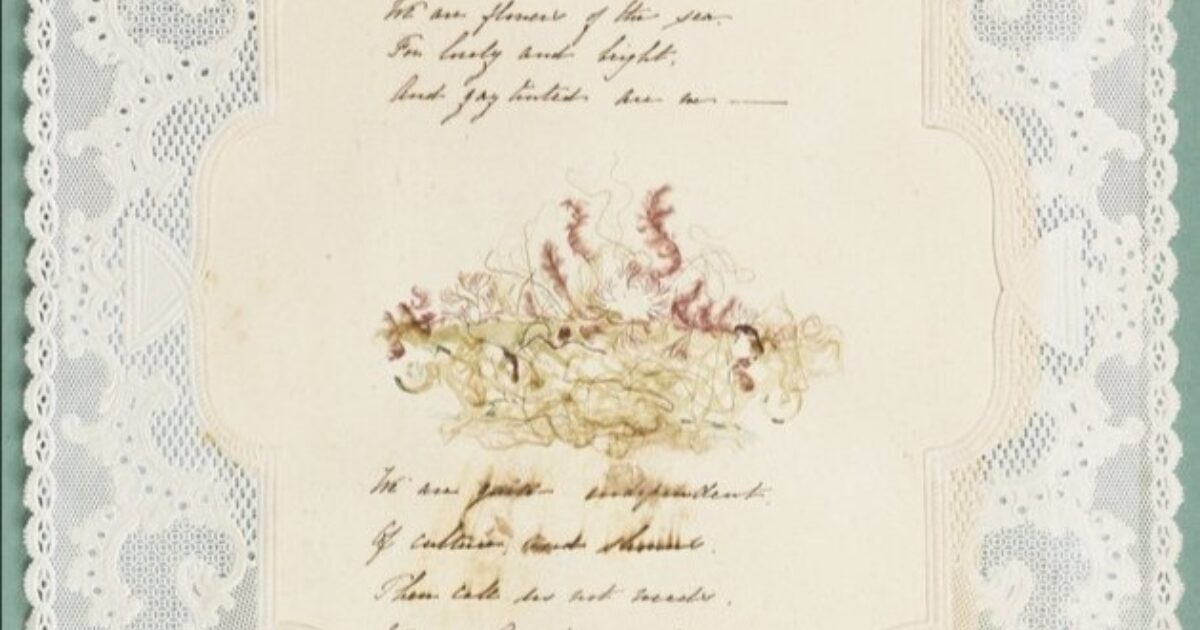 We are flowers of the sea.
For lovely and bright.
And gay tinted are we —
We are quite independent.
Of culture, and
Then call us not weeds.